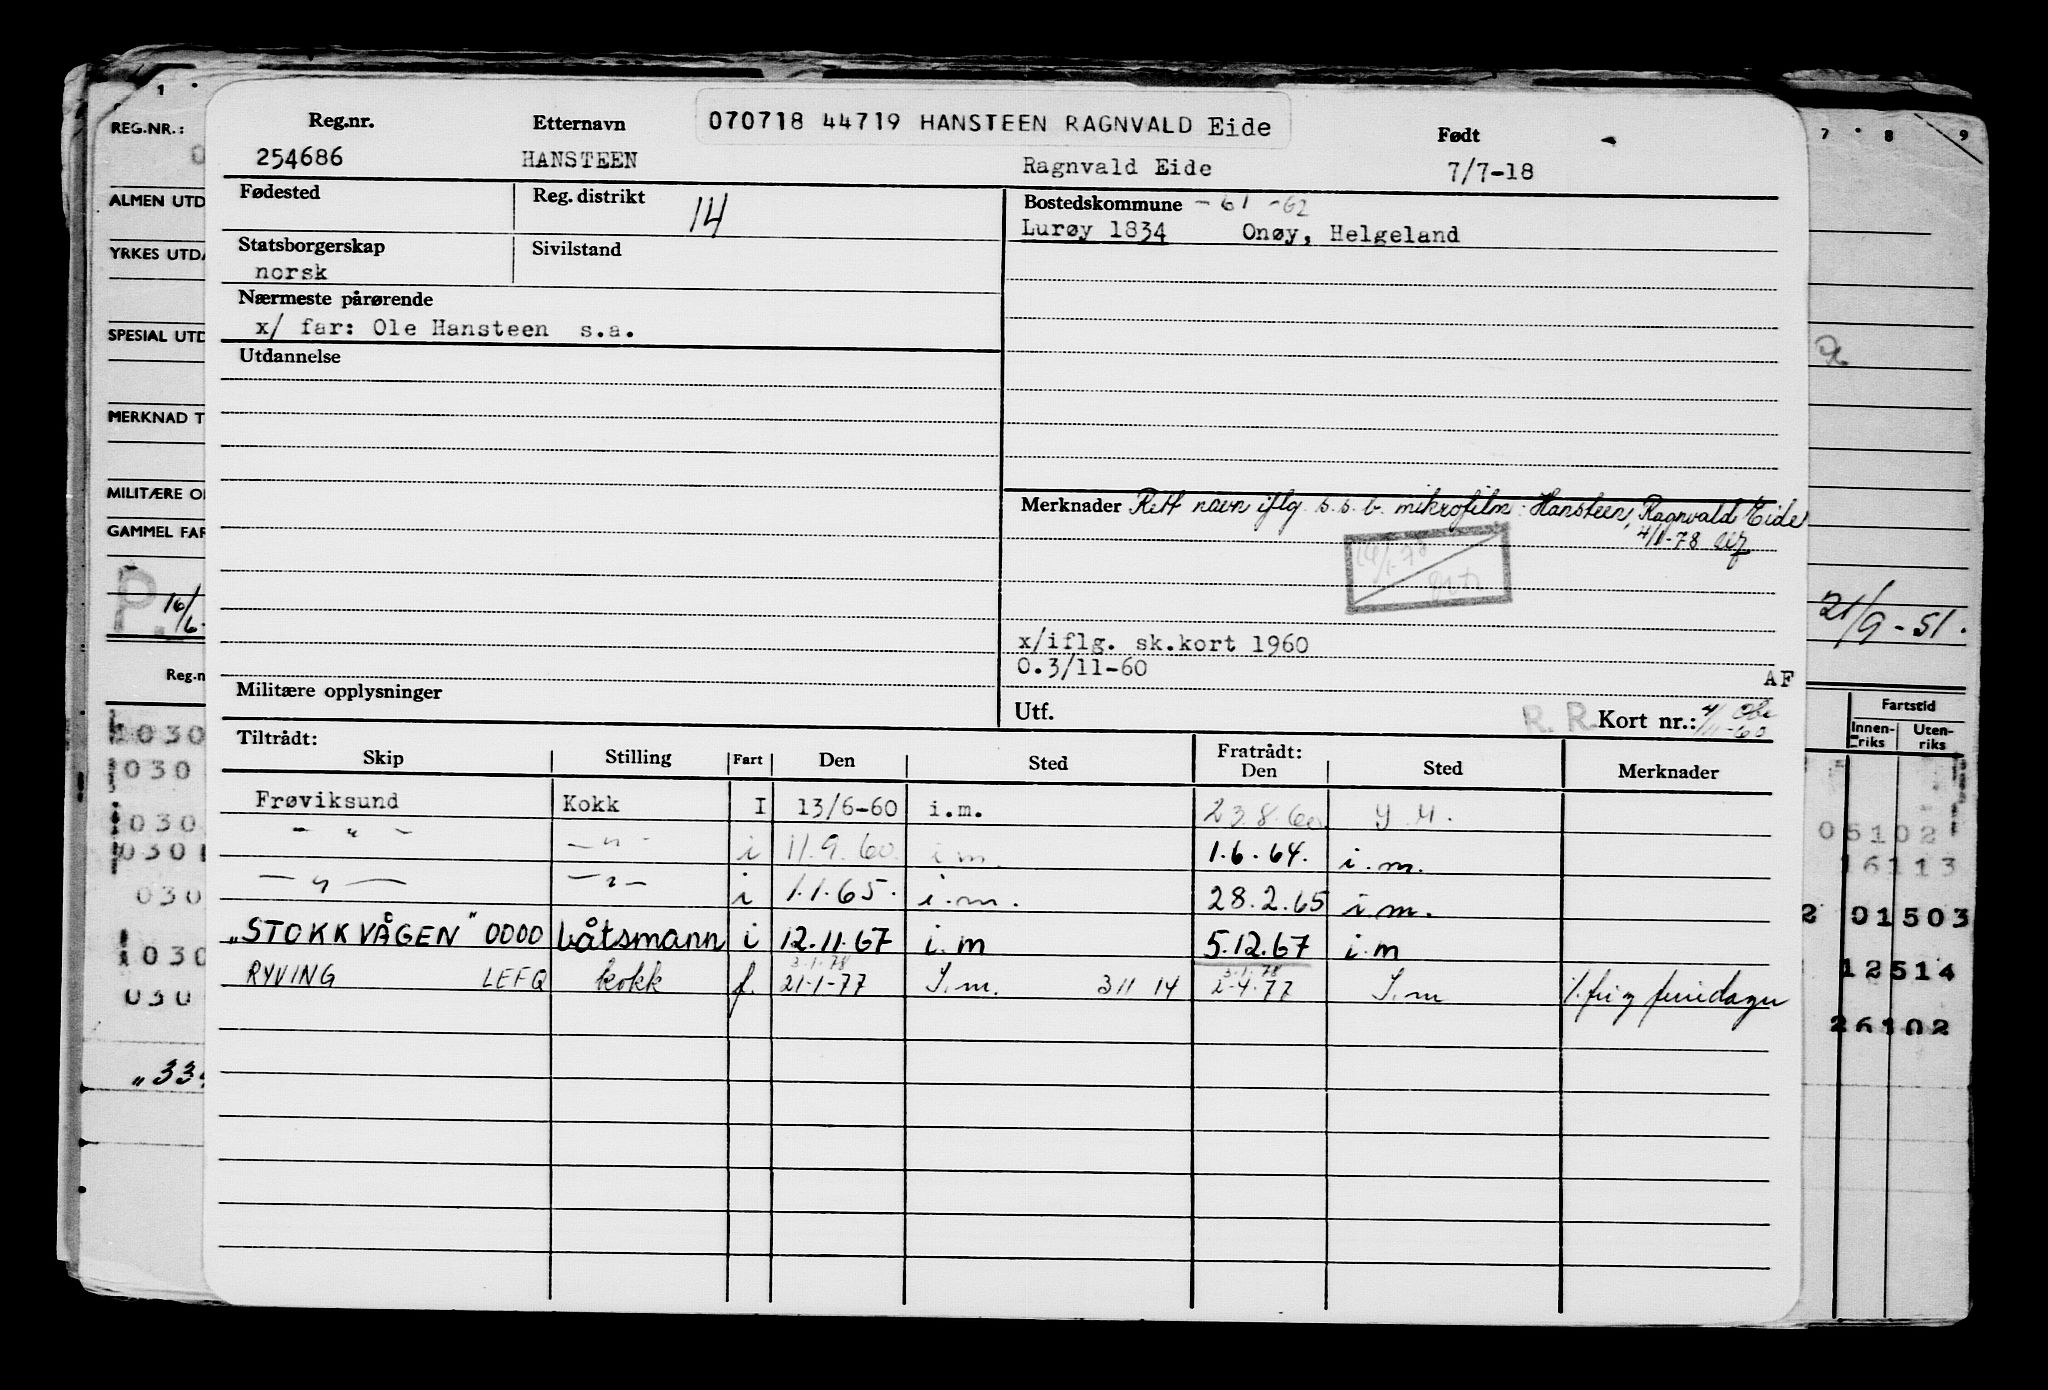 070718 44719 HANSTEEN RAGNVALD Eide
Reg.nr. Etternavn Født
254686 HANSTEEN Ragnvald Eide 7/7-18
Fødested Reg. distrikt 14 Bostedskommune - 61 -62
Lurøy 1834 Onøy, Helgeland
Statsborgerskap Sivilstand
norsk
Nærmeste pårørende
x/ far: Ole Hansteen s.a.
Utdannelse
Merknader Rett navn iflg. s.s.b. mikrofilm: Hansteen, Ragnvald Eide
x/iflg. sk.kort 1960
O.3/11-60
AF
Militære opplysninger
Utf. R. R. Kort nr.:
Tiltrådt: Fratrådt:
Skip Stilling Fart Den Sted Den Sted Merknader
Frøviksund Kokk I 13/6-60 i.m. 23.8.60
- " - - " - i 11.9.60 i.m. 1.6.64. i.m.
- " - - " - i 1.1.65. i.m. 28.2.65 i.m.
"STOKKVÅGEN" OOOO båtsmann i 12.11.67 i.m 5.12.67 i.m
3.1.78 3.1.78
RYVING LEFQ kokk f. 21-1-77 I.m. 311 14 2-4.77 I.m
REG.NR.:
ALMEN UTD
YRKES UTDA
SPESIAL UTD
MERKNAD T
MILITÆRE O
GAMMEL FAR
P. 16/6-
Reg.n
030
030
030
030
030
030
030
"33
1
7 8 9
21/9-51.
Fartstid
Innen-riks Uten-riks
05102
16113
2 01503
12514
26102